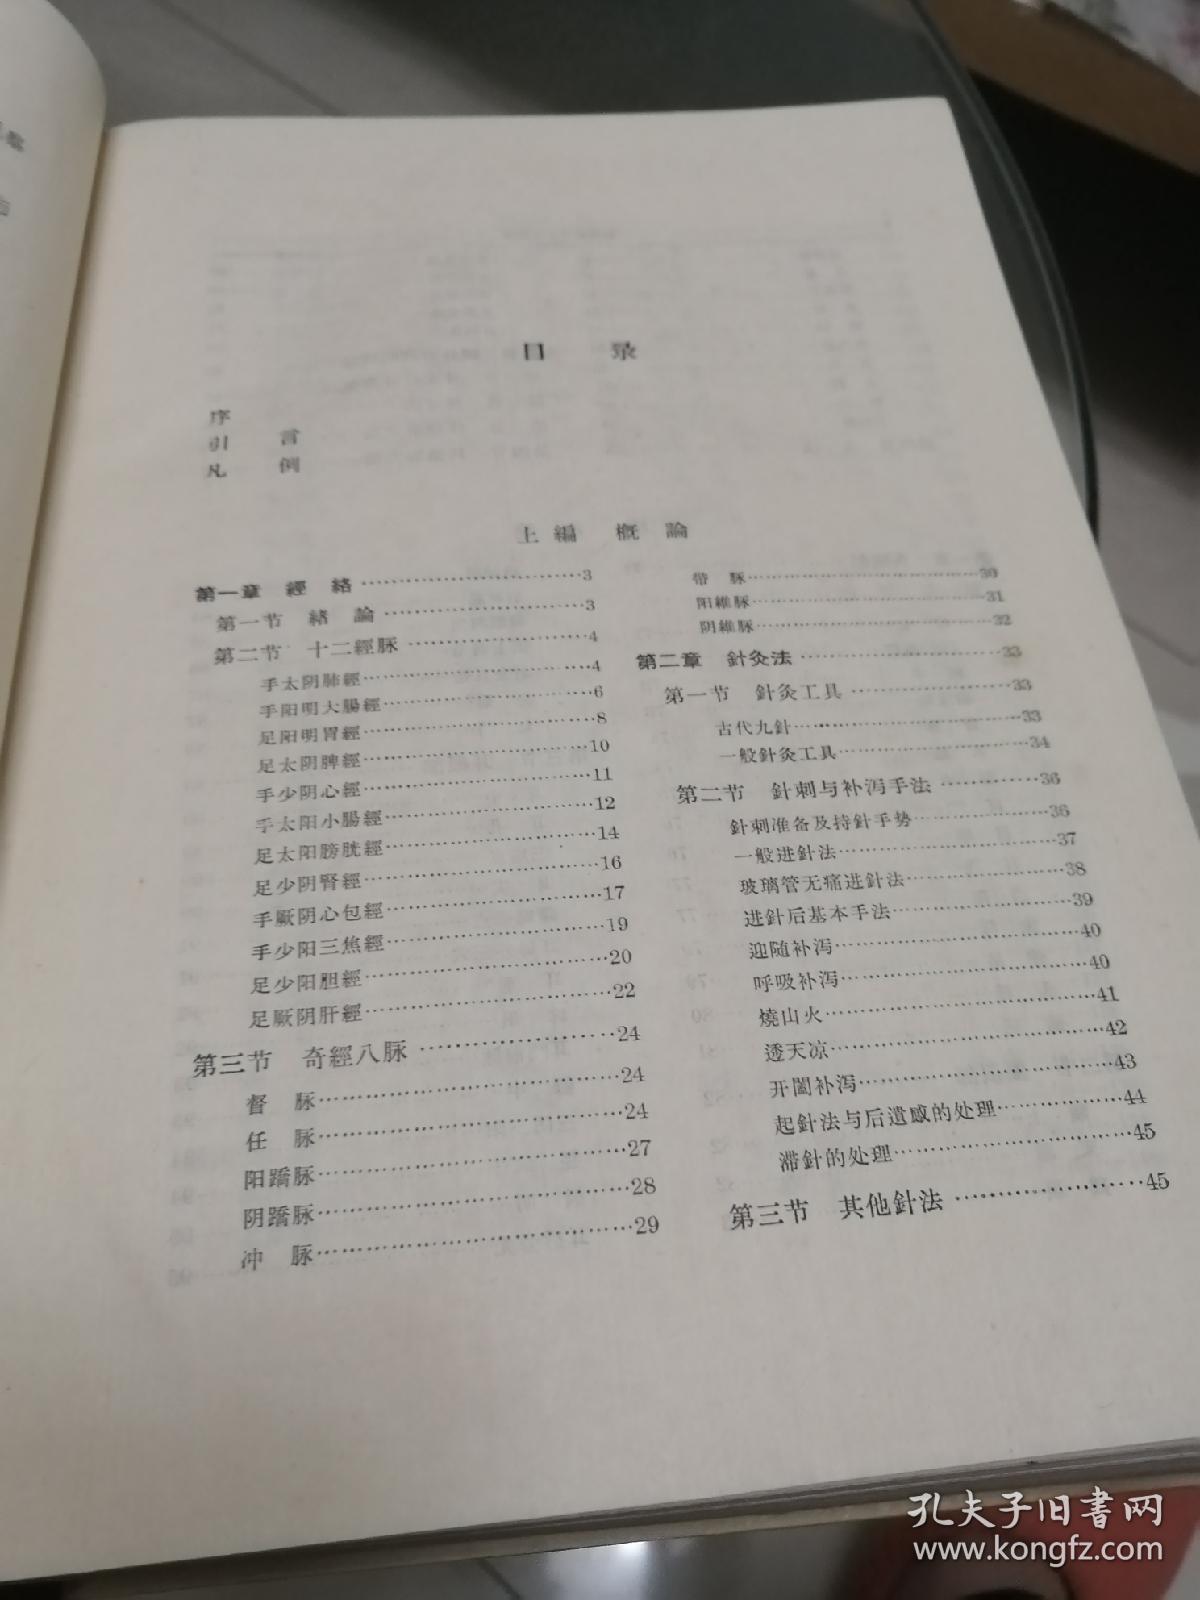 目 录
序
引 言
凡 例
上編 概 論
第一章 經 絡……………………3
第一节 緒 論……………………3
第二节 十二經脈……………………4
手太阴肺經……………………4
手阳明大腸經……………………6
足阳明胃經……………………8
足太阴脾經……………………10
手少阴心經……………………11
手太阳小腸經……………………12
足太阳膀胱經……………………14
足少阴腎經……………………16
手厥阴心包經……………………17
手少阳三焦經……………………19
足少阳胆經……………………20
足厥阴肝經……………………22
第三节 奇經八脉……………………24
督 脉……………………24
任 脉……………………24
阳蹻脉……………………27
阴蹻脉……………………28
冲 脉……………………29
带 脉……………………30
阳維脉……………………31
阴維脉……………………32
第二章 針灸法……………………33
第一节 針灸工具……………………33
古代九針……………………33
一般針灸工具……………………34
第二节 針刺与补泻手法……………………36
針刺准备及持針手势……………………36
一般进針法……………………37
玻璃管无痛进針法……………………38
进針后基本手法……………………39
迎随补泻……………………40
呼吸补泻……………………40
燒山火……………………41
透天凉……………………42
开闔补泻……………………43
起針法与后遺感的处理……………………44
滯針的处理……………………45
第三节 其他針法……………………45
孔夫子旧書网
www.kongfz.com